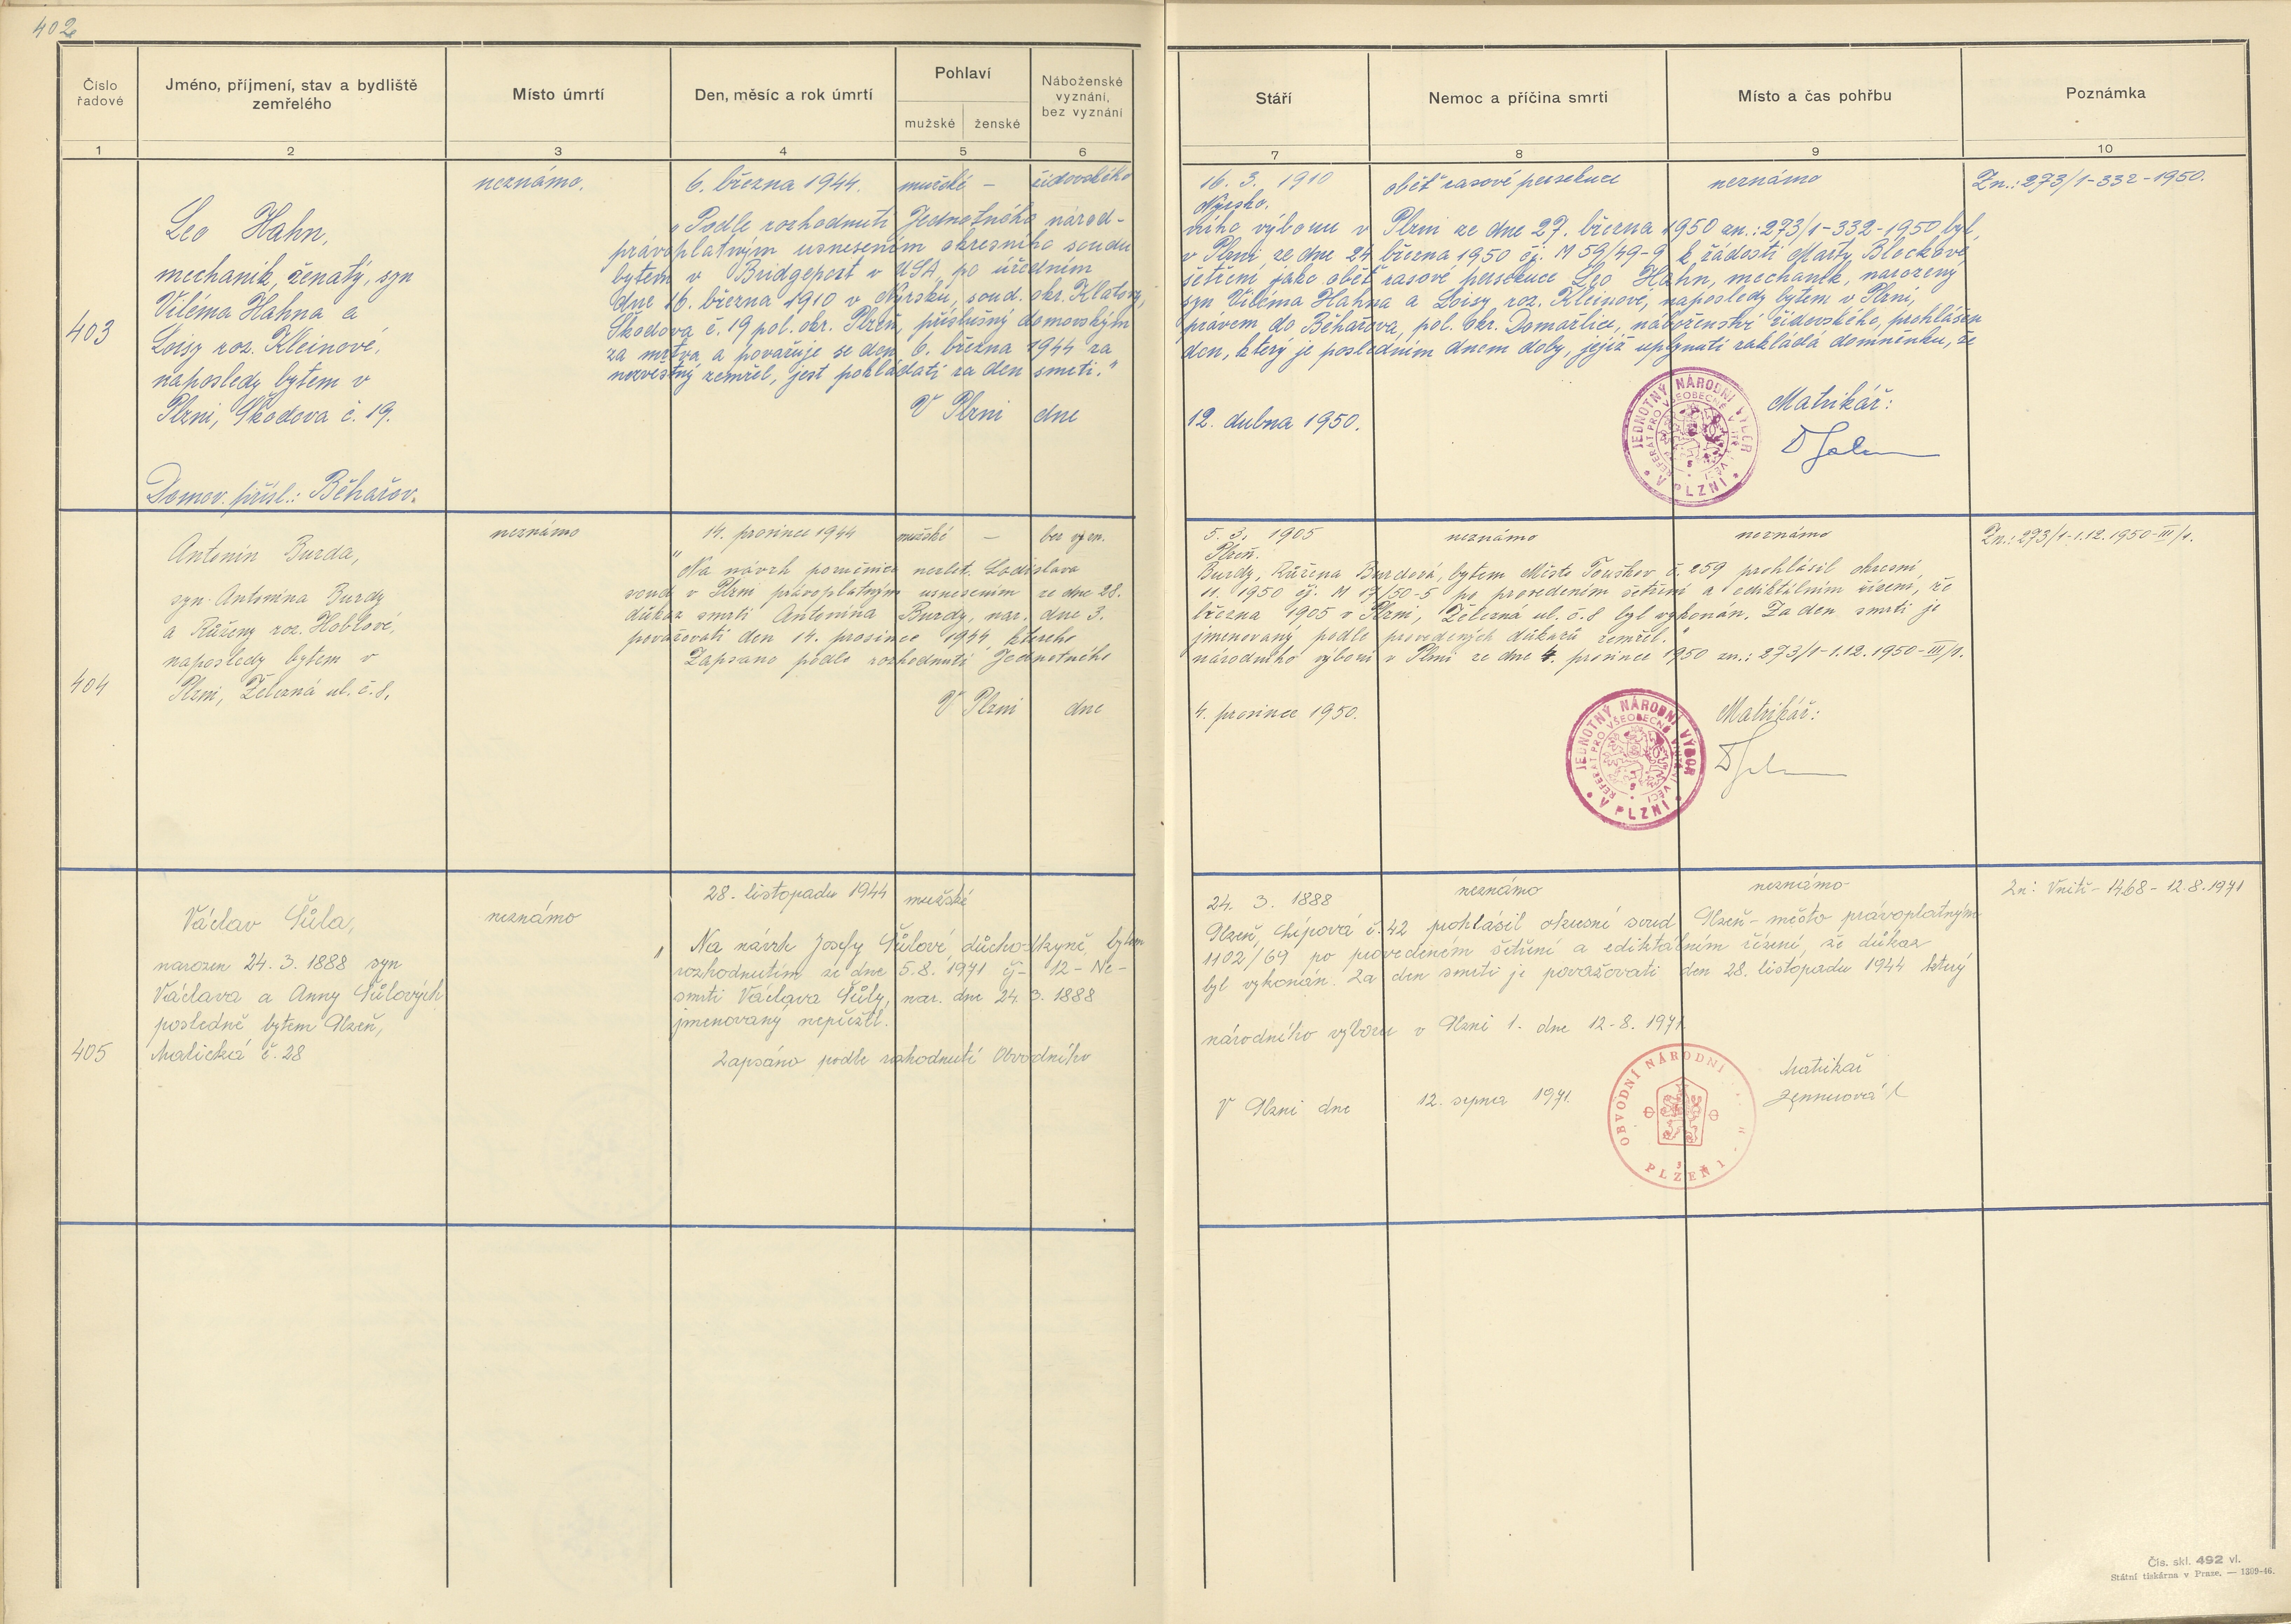 402
Číslo řadové
Jméno, příjmení, stav a bydliště zemřelého
Místo úmrtí
Den, měsíc a rok úmrtí
Pohlaví
mužské
ženské
Náboženské vyznání, bez vyznání
Stáří
Nemoc a příčina smrti
Místo a čas pohřbu
Poznámka
1 2 3 4 5 6 7 8 9 10
403
Leo Hahn,
mechanik, ženatý, syn
Viléma Hahna a
Loisy roz. Kleinové,
naposledy bytem v
Plzni, Škodova č. 19.
Domov. přísl.: Běhařov.
neznámo.
6. března 1944.
mužské –
židovského
16. 3. 1910
Nýrsko.
oběť rasové persekuce
neznámo
Zn.: 273/1-332-1950.
„Podle rozhodnutí Jednotného národ-
ního výboru v Plzni ze dne 27. března 1950 zn.: 273/1-332-1950 byl
právoplatným usnesením okresního soudu
v Plzni ze dne 24 března 1950 čj. M 59/49-9 k žádosti Marty Blockové,
bytem v Bridgeport v USA, po úředním
šetření jako oběť rasové persekuce Leo Hahn, mechanik, narozený
dne 16. března 1910 v Nýrsku, soud. okr. Klatovy,
syn Viléma Hahna a Loisy roz. Kleinové, naposledy bytem v Plzni,
Škodova č. 19 pol. okr. Plzeň, příslušný domovským
právem do Běhařova, pol. okr. Domažlice, náboženství židovského, prohlášen
za mrtva a považuje se den 6. března 1944 za
den, který je posledním dnem doby, jejíž uplynutí zakládá domněnku, že
nezvěstný zemřel, jest pokládati za den smrti."
V Plzni dne
12. dubna 1950.
Matrikář:
JEDNOTNÝ NÁRODNÍ VÝBOR
V PLZNI
REFERÁT PRO VŠEOBECNÉ VNITŘNÍ VĚCI
404
Antonín Burda,
syn Antonína Burdy
a Růženy roz. Hoblové,
naposledy bytem v
Plzni, Železná ul. č. 8.
neznámo
14. prosince 1944
mužské –
bez vyzn.
5. 3. 1905
Plzeň.
neznámo
neznámo
Zn.: 273/1-1.12.1950-III/1.
"Na návrh poručnice nezlet. Ladislava
Burdy, Růžena Burdová, bytem Město Touškov č. 259 prohlásil okresní
soud v Plzni právoplatným usnesením ze dne 28.
11. 1950 čj. M 17/50-5 po provedením šetření a ediktálním řízení, že
důkaz smrti Antonína Burdy, nar. dne 3.
března 1905 v Plzni, Železná ul. č. 8 byl vykonán. Za den smrti je
považovati den 14. prosince 1944, kterého
jmenovaný podle provedených důkazů zemřel."
Zapsáno podle rozhodnutí Jednotného
národního výboru v Plzni ze dne 4. prosince 1950 zn.: 273/1-1.12.1950-III/1.
V Plzni dne
4. prosince 1950.
Matrikář:
JEDNOTNÝ NÁRODNÍ VÝBOR
V PLZNI
REFERÁT PRO VŠEOBECNÉ VNITŘNÍ VĚCI
405
Václav Šůla,
narozen 24. 3. 1888 syn
Václava a Anny Šůlových
posledně bytem Plzeň,
Malická č. 28
neznámo
28. listopadu 1944
mužské
24. 3. 1888
neznámo
neznámo
Zn: Vnitř- 1468- 12.8.1971
„Na návrh Josefy Šůlové, důchodkyně, bytem
Plzeň, Lípová č. 42 prohlásil okresní soud Plzeň-město právoplatným
rozhodnutím ze dne 5.8.1971 čj- 12- Nc-
1102/69 po provedeném šetření a ediktálním řízení, že důkaz
smrti Václava Šůly, nar. dne 24. 3. 1888
byl vykonán. Za den smrti je považovati den 28. listopadu 1944 který
jmenovaný nepřežil.
Zapsáno podle rozhodnutí Obvodního
národního výboru v Plzni 1. dne 12.8.1971
V Plzni dne 12. srpna 1971.
Matrikář
OBVODNÍ NÁRODNÍ
PLZEŇ 1
Čís. skl. 492 vl.
Státní tiskárna v Praze. — 1309-46.